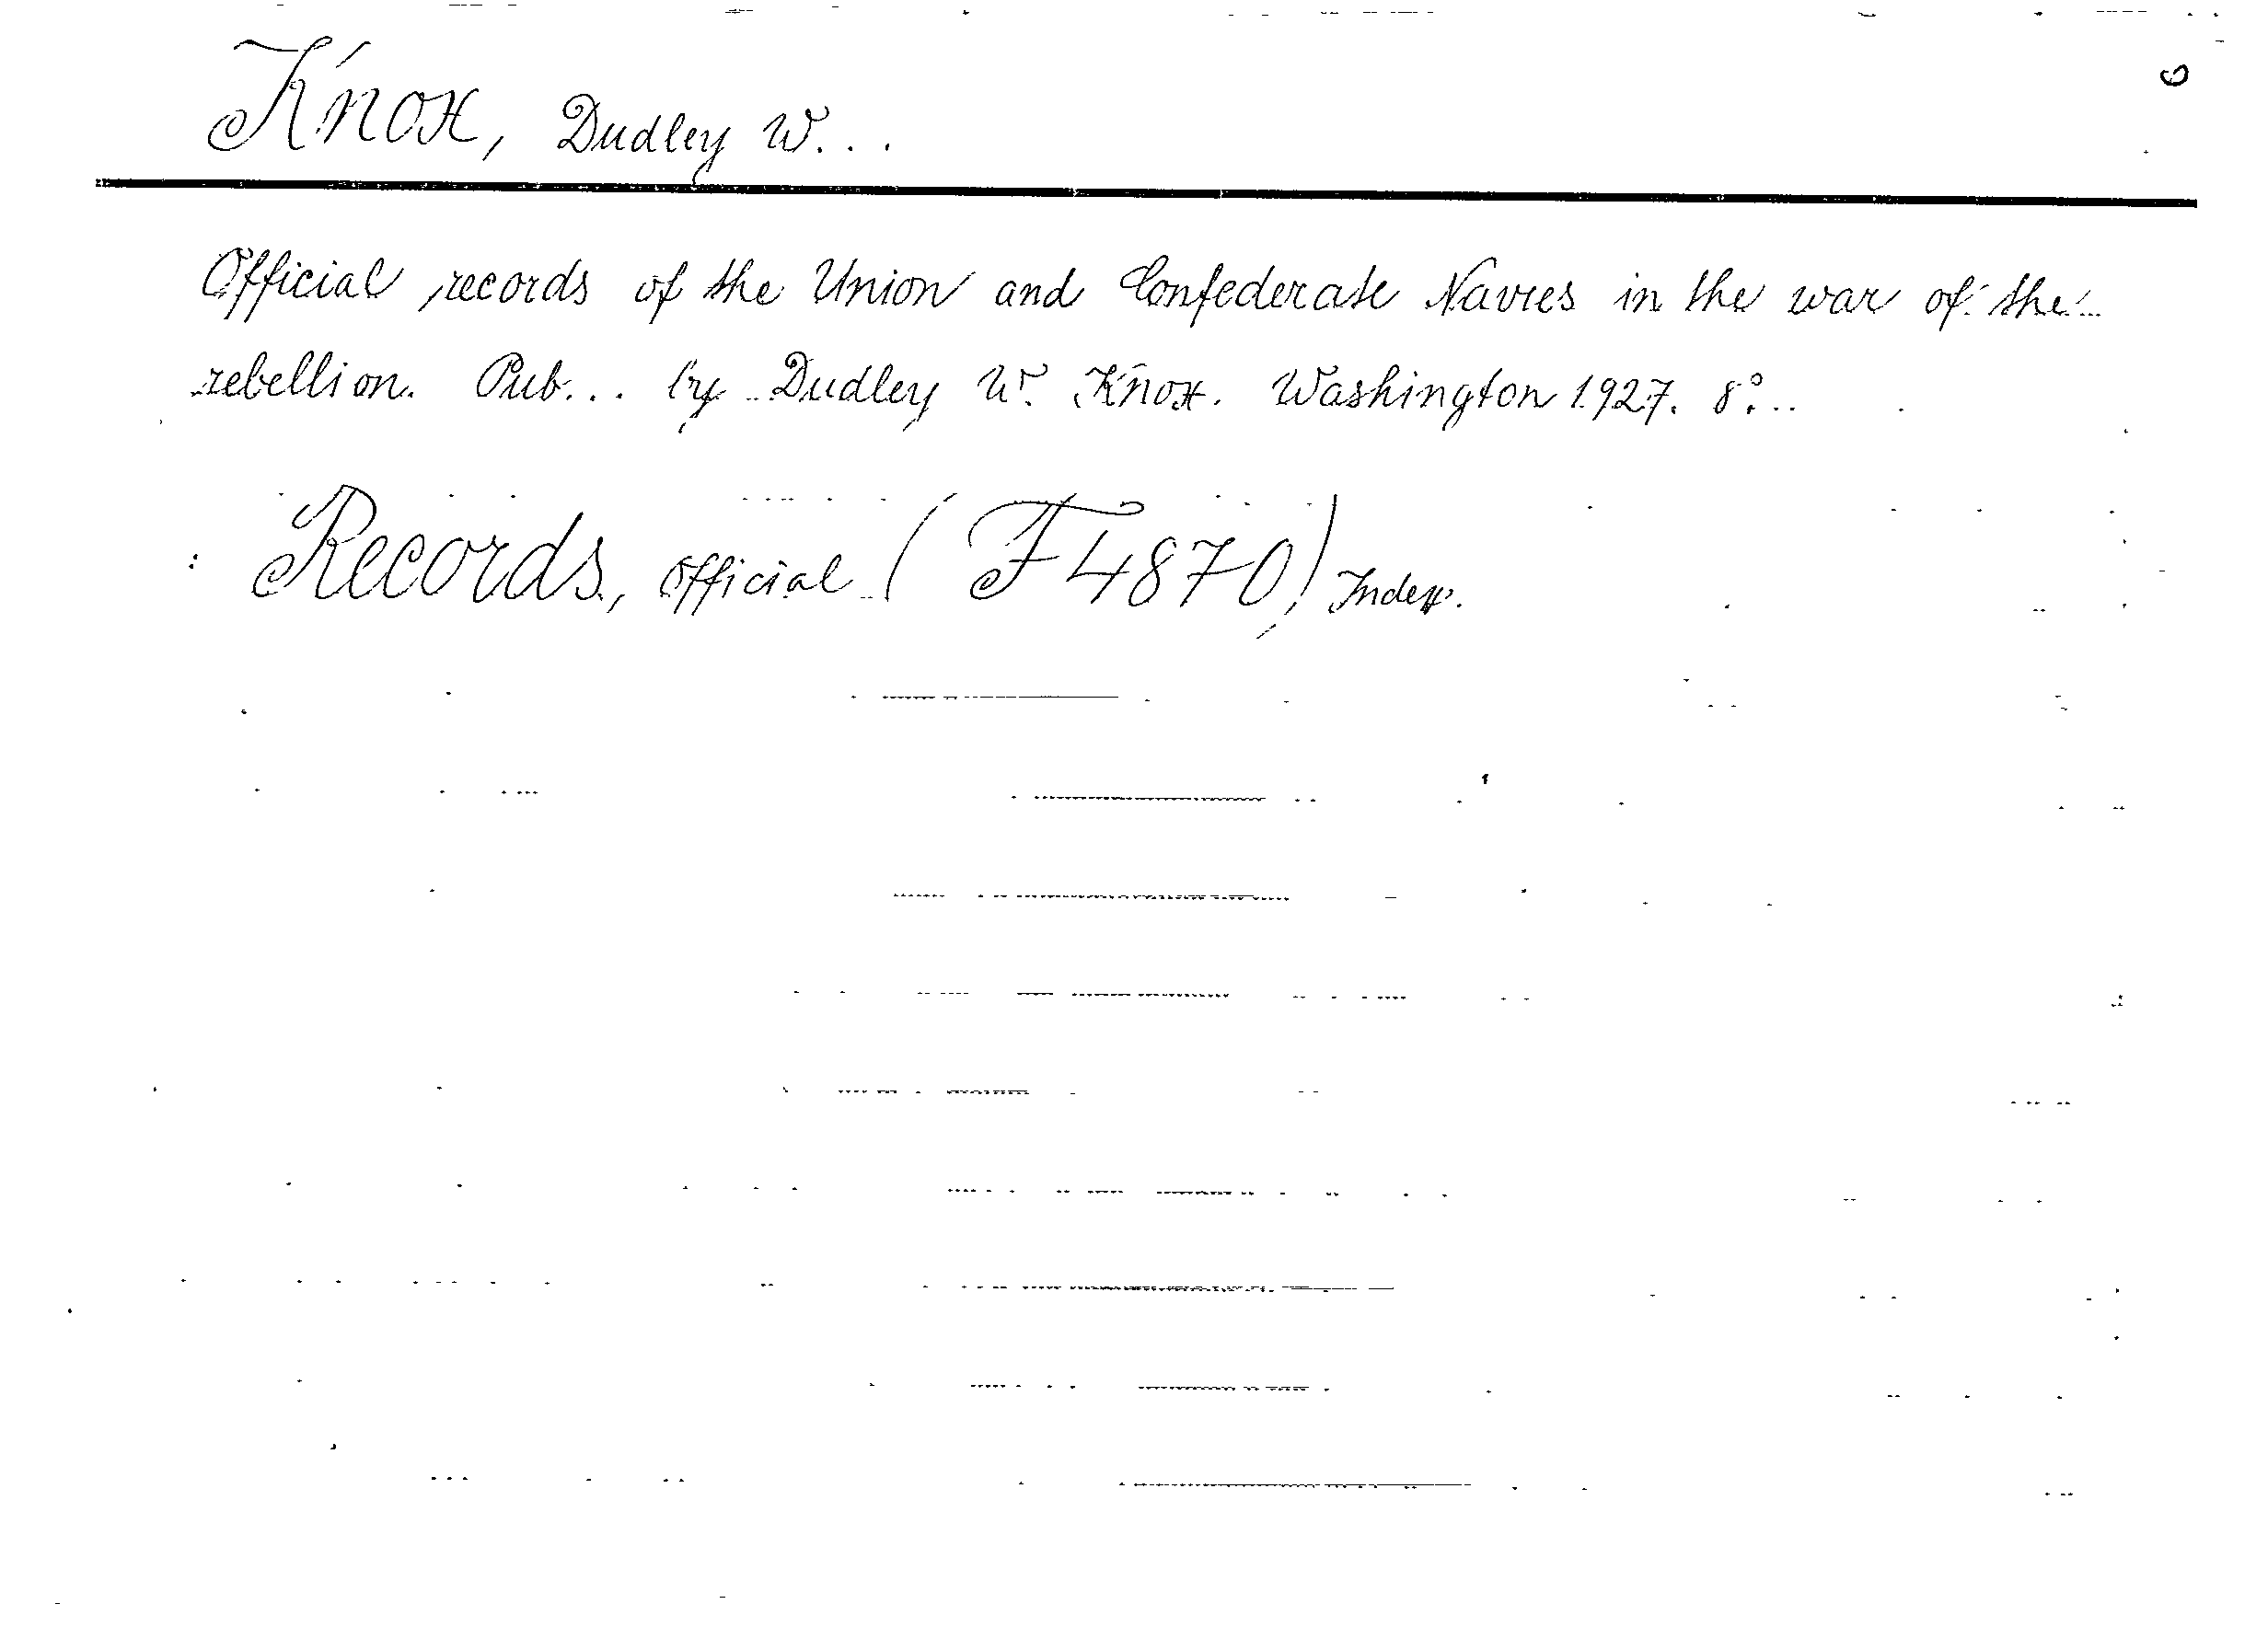 Knox, Dudley W...
Official records of the Union and Confederate Navies in the war of the
rebellion. Pub... by Dudley W. Knox. Washington 1927. 8°.
: Records, official (F 4870) Index.